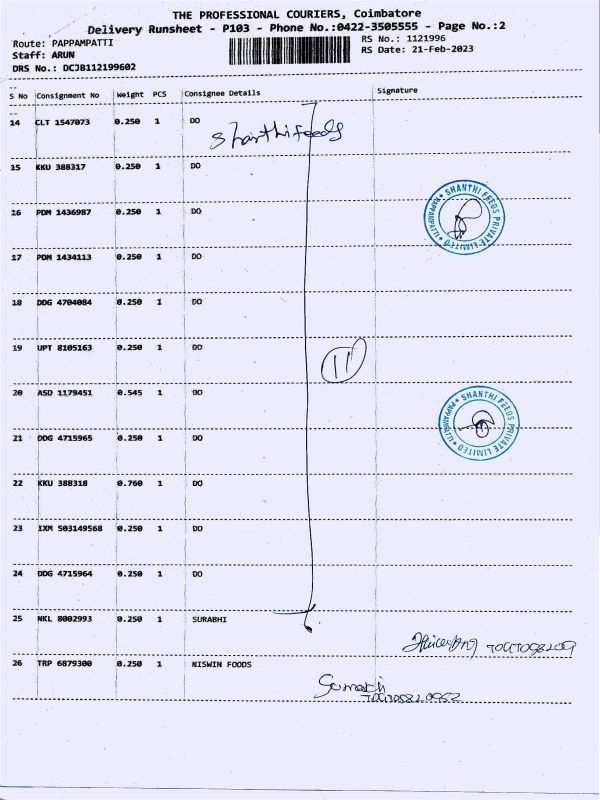 THE PROFESSIONAL COURIERS, Coimbatore
Delivery Runsheet - P103 - Phone No.:0422-3505555 - Page No.:2
Route: PAPPAMPATTI
RS No.: 1121996
Staff: ARUN
RS Date: 21-Feb-2023
DRS No.: DCJB112199602
S No Consignment No Weight PCS Consignee Details Signature
14 CLT 1547073 0.250 1 DO
Shanthi feeds
15 KKU 388317 0.250 1 DO
16 PDM 1436987 0.250 1 DO
SHANTHI FEEDS PRIVATE LIMITED
17 PDM 1434113 0.250 1 DO
18 DDG 4704084 0.250 1 DO
19 UPT 8105163 0.250 1 DO
11
20 ASD 1179451 0.545 1 DO
SHANTHI FEEDS PRIVATE LIMITED
21 DDG 4715965 0.250 1 DO
22 KKU 388318 0.760 1 DO
23 IXM 503149568 0.250 1 DO
24 DDG 4715964 0.250 1 DO
25 NKL 8002993 0.250 1 SURABHI
26 TRP 6879300 0.250 1 NISWIN FOODS